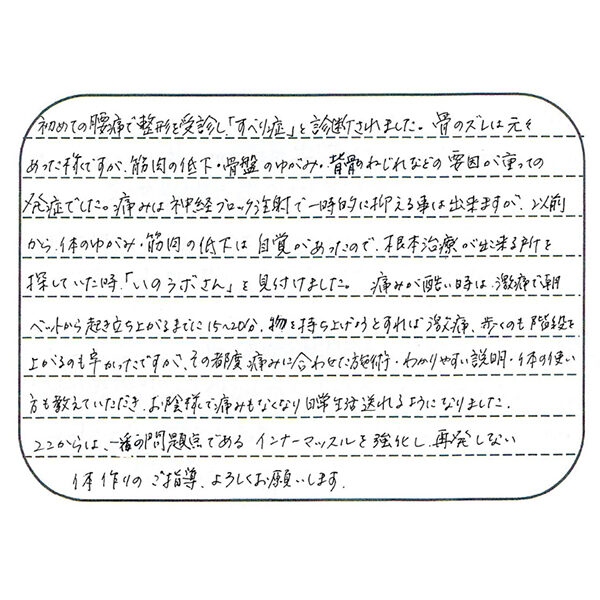 初めての腰痛で整形を受診し「すべり症」と診断されました。骨のズレは元々
あった様ですが、筋肉の低下・骨盤のゆがみ・背骨のねじれなどの要因が重っての
発症でした。痛みは神経ブロック注射で一時的に抑える事は出来ますが、以前
から、体のゆがみ・筋肉の低下は自覚があったので、根本治療が出来る所を
探していた時、「いのうぶさん」を見付けました。 痛みが酷い時は、激痛で朝
ベットから起き立ち上がるまでに15〜20分、物を持ち上げようとすれば激痛、歩くのも階段を
上がるのも辛かったですが、その都度痛みに合わせた施術・わかりやすい説明・体の使い
方も教えていただき、お陰様で痛みもなくなり日常生活送れるようになりました。
ここからは、一番の問題点であるインナーマッスルを強化し、再発しない
体作りのご指導、よろしくお願いします。